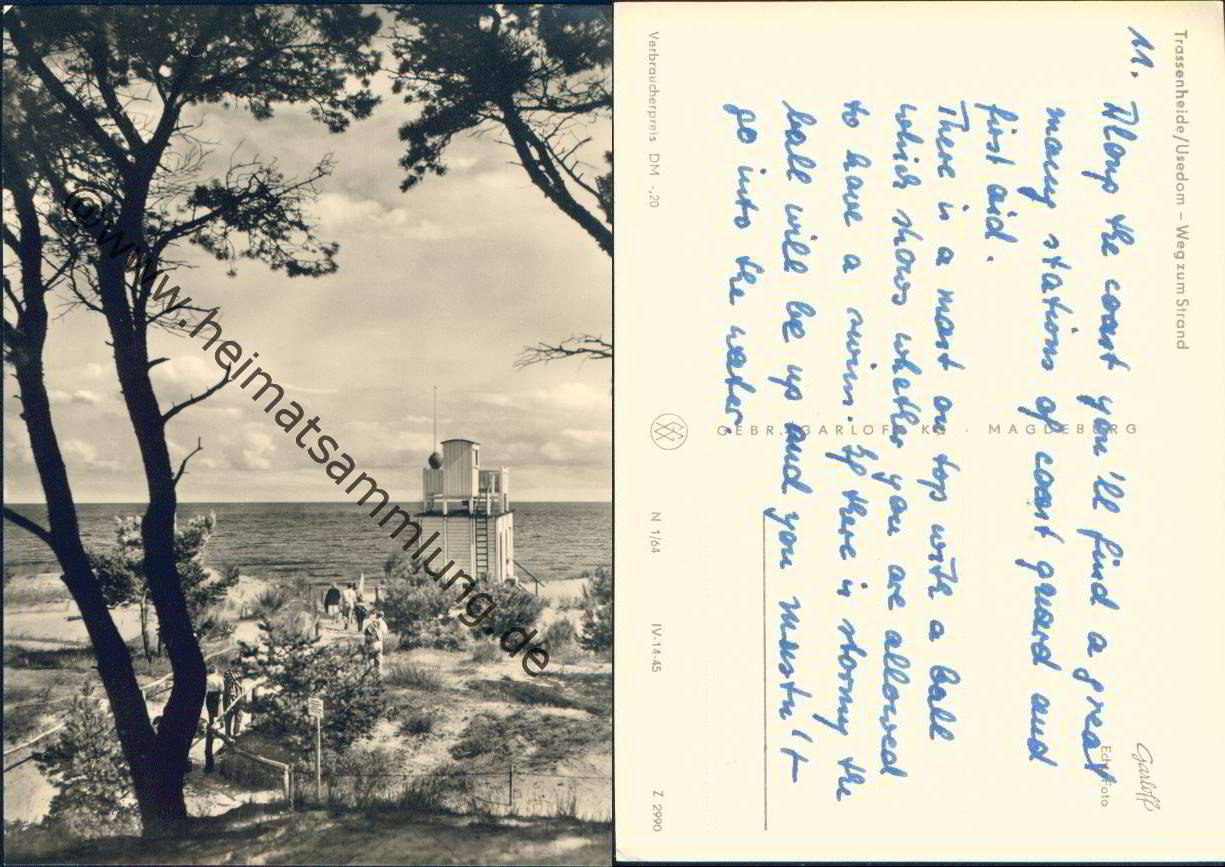 © www.heimatsammlung.de
Trassenheide/Usedom – Weg zum Strand
11. Along the coast you'll find a great
many stations of coast guard and
first aid.
There is a mast on top with a ball
which shows whether you are allowed
to have a swim. If there is stormy the
ball will be up and you mustn't
go into the water.
Garloff
Echt Foto
GEBR. GARLOFF KG · MAGDEBURG
Verbraucherpreis DM -,20
N 1/64
IV-14-45
Z 2990